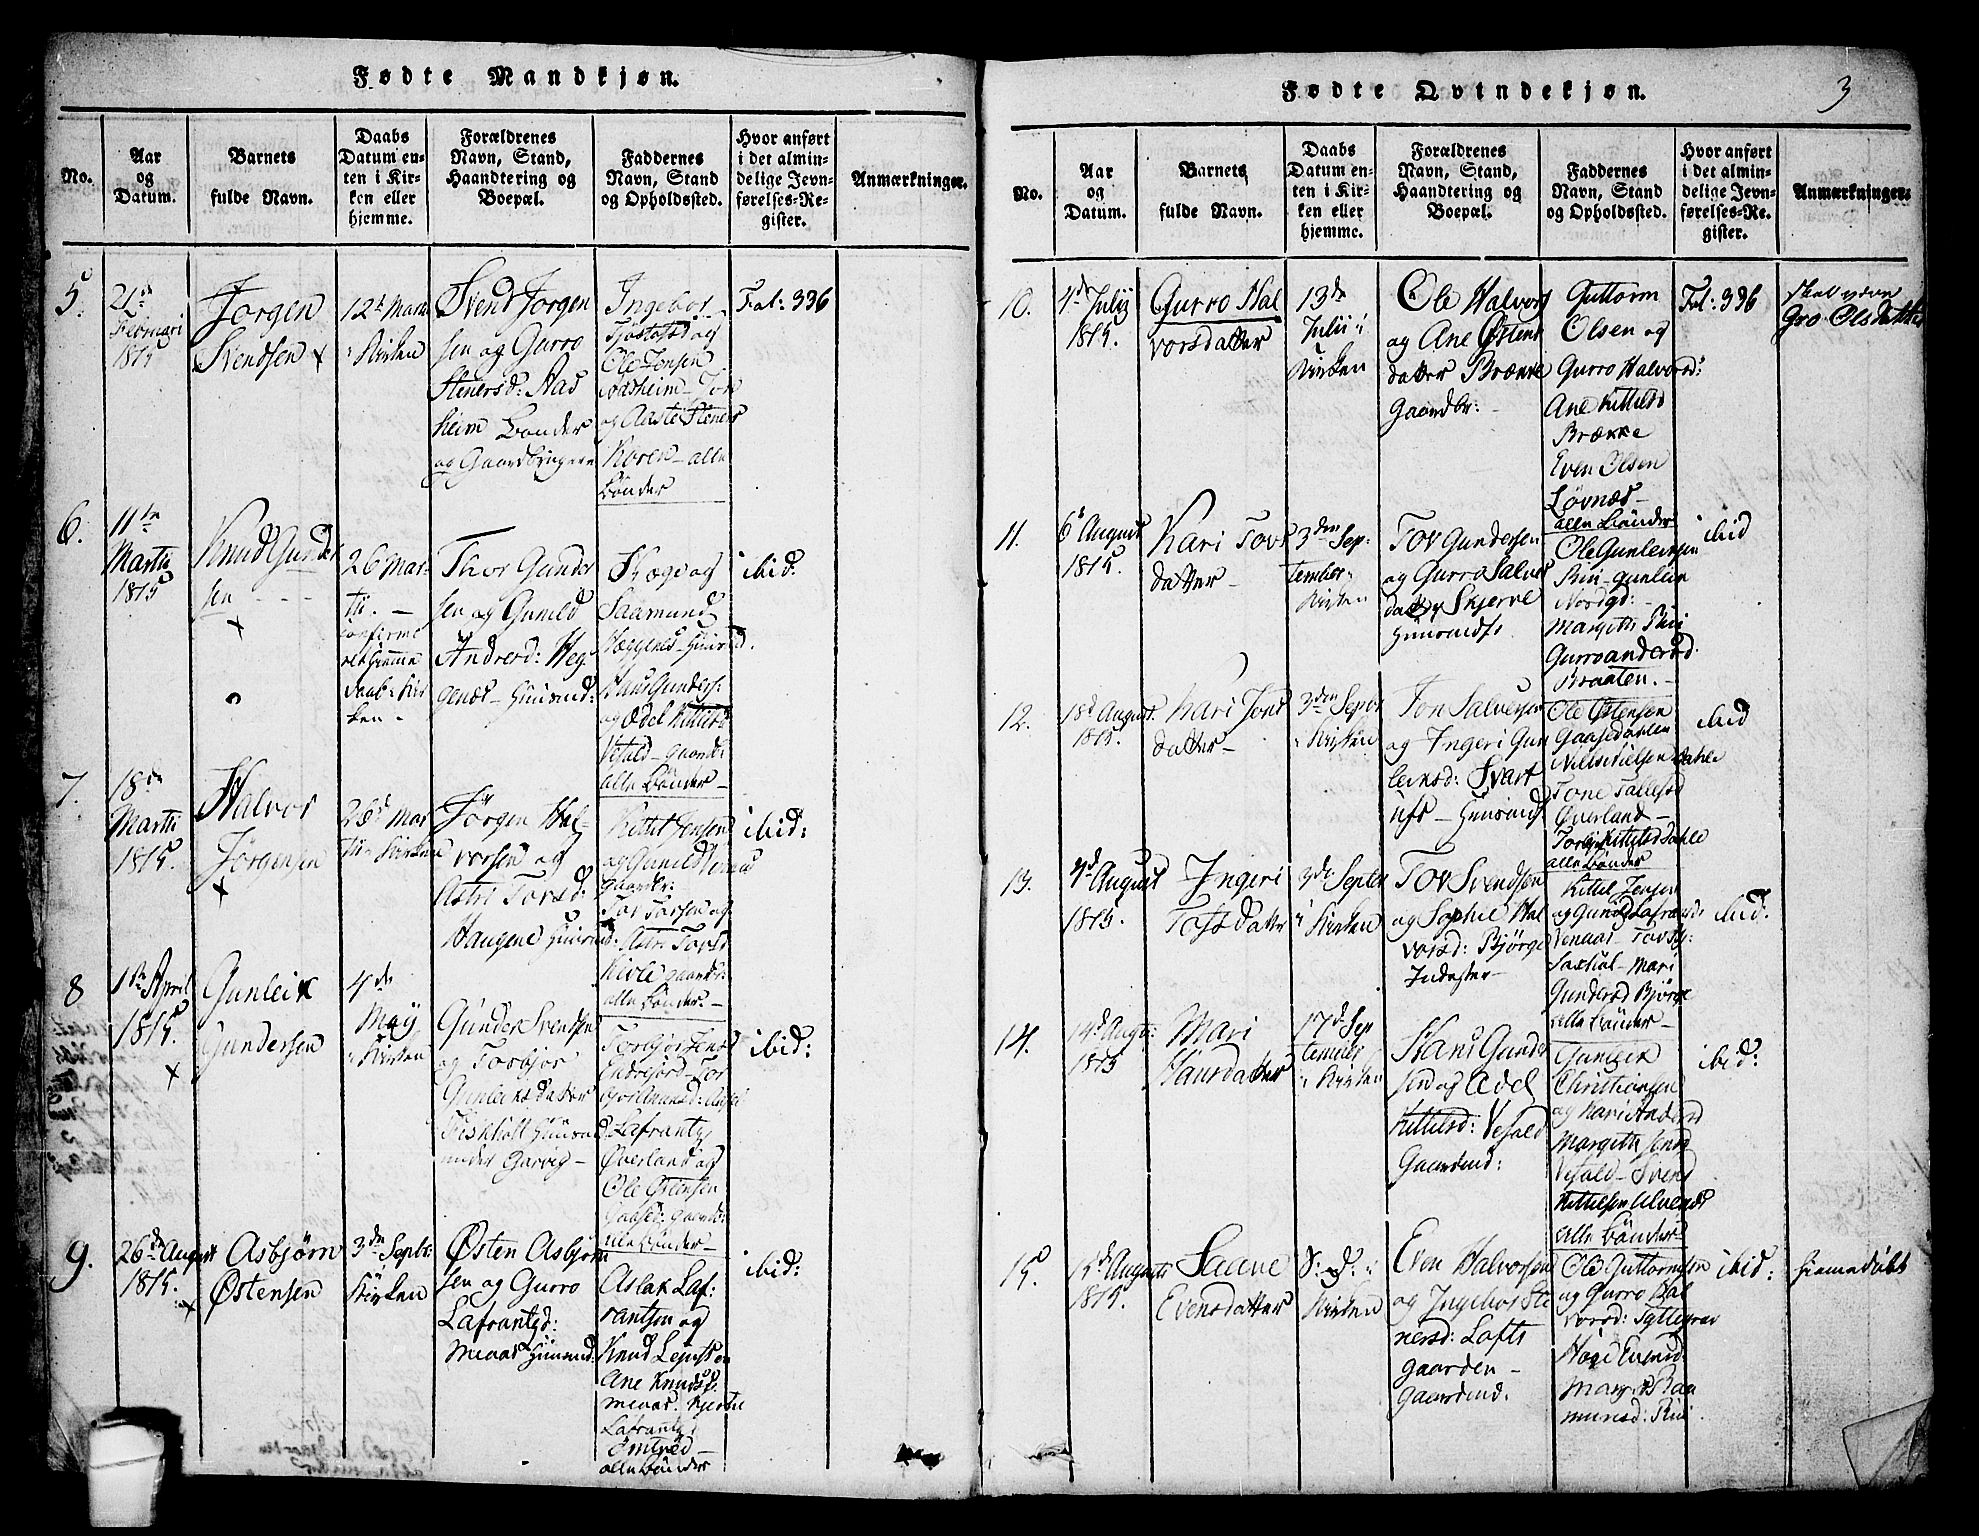 Fødte Mandkjøn.
No.
Aar
og
Datum.
Barnets
fulde Navn.
Daabs
Datum en-
ten i Kir-
ken eller
hjemme.
Forældrenes
Navn, Stand,
Haandtering og
Boepæl.
Faddernes
Navn, Stand
og Opholdssted.
Hvor anført
i det almin-
delige Jevn-
førelses-Re-
gister.
Anmærkninger.
5.
21de
Februari
1815
Jørgen
Svendsen x
12te Martii
i Kirken
Svend Jørgen
sen og Gurro
Stenersd: Aas
heim Bønder
og Gaardbrugere
Ingebor
Tjostolfsd og
Ole Jensen
Aasheim - Tor
og Aaste Steners
Koren - alle
Bønder
Fol: 336
6.
11te
Martii
1815
Knud Gunder
sen
x
26 Mar-
tii. -
confirme
ret hiemme
daab i Kir
ken -
Thor Gunder
sen og Gunild
Andresd: Heg
genæs - Huusmd:
og
Saamund
Hæggenes - Huusmd.
Hans Gunders:
og Edel Kittilsd
Vefald - gaardb:
alle Bønder -
ibid:
7.
18de
Martii
1815.
Halvor
Jørgensen
x
26de Mar
tii i Kirken
Jørgen Hal-
vorsen og
Astri Torsd:
Haugene Huusmd:
Kittil Jensen
og Gunild Venaas
gaardbr:
Tov Torsen og
Astri Torsd
Kivle gaardb:
alle Bønder. -
ibid:
8
1ste April
1815.
Gunleik
Gundersen
x
4de
Maÿ
i Kirken
Gunder Svendsen
og Torbjør
Gunleiksdatter
Fiskholt Huusmd
under Garvig -
Torbjør Jensd
Lafrantz
Overland og
Ole Østensen
Gaased: gaardb:
alle Bønder -
ibid:
9.
26de August
1815.
x
Asbjørn
Østensen
3die Septbr
Kirken
Østen Asbjørn
sen og Gurro
Lafrantzd:
Meaas Huusmd:
Aslak Laf:
rantsen og
Knud
Ane Knudsd.
meaas. Kjerstie
Lafrantz:
Omtred -
alle Bønder
ibid:
Fødte Qvindekjøn.
3
No.
Aar
og
Datum.
Barnets
fulde Navn.
Daabs
Datum en-
ten i Kir-
ken eller
hjemme.
Forældrenes
Navn, Stand,
Haandtering og
Boepæl.
Faddernes
Navn, Stand
og Opholdssted.
Hvor anført
i det almin-
delige Jevn-
førelses-Re-
gister.
Anmærkninger.
10.
4de Julij
1815.
Gurro Hal
vorsdatter
13de
Julij i
Kirken
Ole Halvors
og Ane Østens
datter Brække
Gaardbr: -
Guttorm
Olsen og
Gurro Halvorsd:
Ane Kittilsd
Brække
Even Olsen
Løvnæs -
alle Bønder
Fol: 336
skal være
Gro Olsdatter
11.
6te August
1815.
Kari Tovs
datter -
3den Sep:
tember i
Kirken
Tov Gundersen
og Gurro Salves
datter Skjerve
Huusmdf.
Ole Gunleiksen
Rui - Gunleik
Nordgd: -
Margith Rui
Gurro andersd.
Braaten. -
ibid
12.
18d August.
1815.
Kari Jons
datter -
3die Septbr
i Kirken
Jon Salvesen
og Ingeri Gun
leiksd: Svart
ufs - Huusmdf
Ole Østensen
Gaasedahlen
Niels Nielsen Dahle
Tone Tallefsd
Overland -
Torbjør Kittilsd Dahle
alle Bønder
ibid
13.
4d August
1815.
Ingeri
Tovsdatter
3die Septbr
i Kirken
Tov Svendsen
og Sophie Hal
vorsd: Bjørge
Inderster -
Kittil Jensen
og Gunild Lafrandsd:
Venaas - Tov
Mari
Gundersd Bjørge
alle Bønder -
ibid:
14.
14d Augti:
1815
Mari
Hansdatter
17d Sep
tember
i Kirken
Hans Gunder
sen og Edel
Kittilsd: Vefald
Gaardmd:
Gunleik
Christiansen
og Kari Andersd
Margith Jensd
Vefald - Svend
Kittilsen Ulvenæs
alle Bønder -
ibid:
15.
15d Augusti
1815.
Saane
Evensdatter
S: d: i
Kirken
Even Halvorsen
og Ingebor Ste
nersd: Lofts
gaarden -
Gaardmd:
Ole Guttormsen
og Gurro Hal
vorsd: Tyttegrav
Evensd:
Margit Saa
mundsd: Rui
ibid:
Hiemedøbt